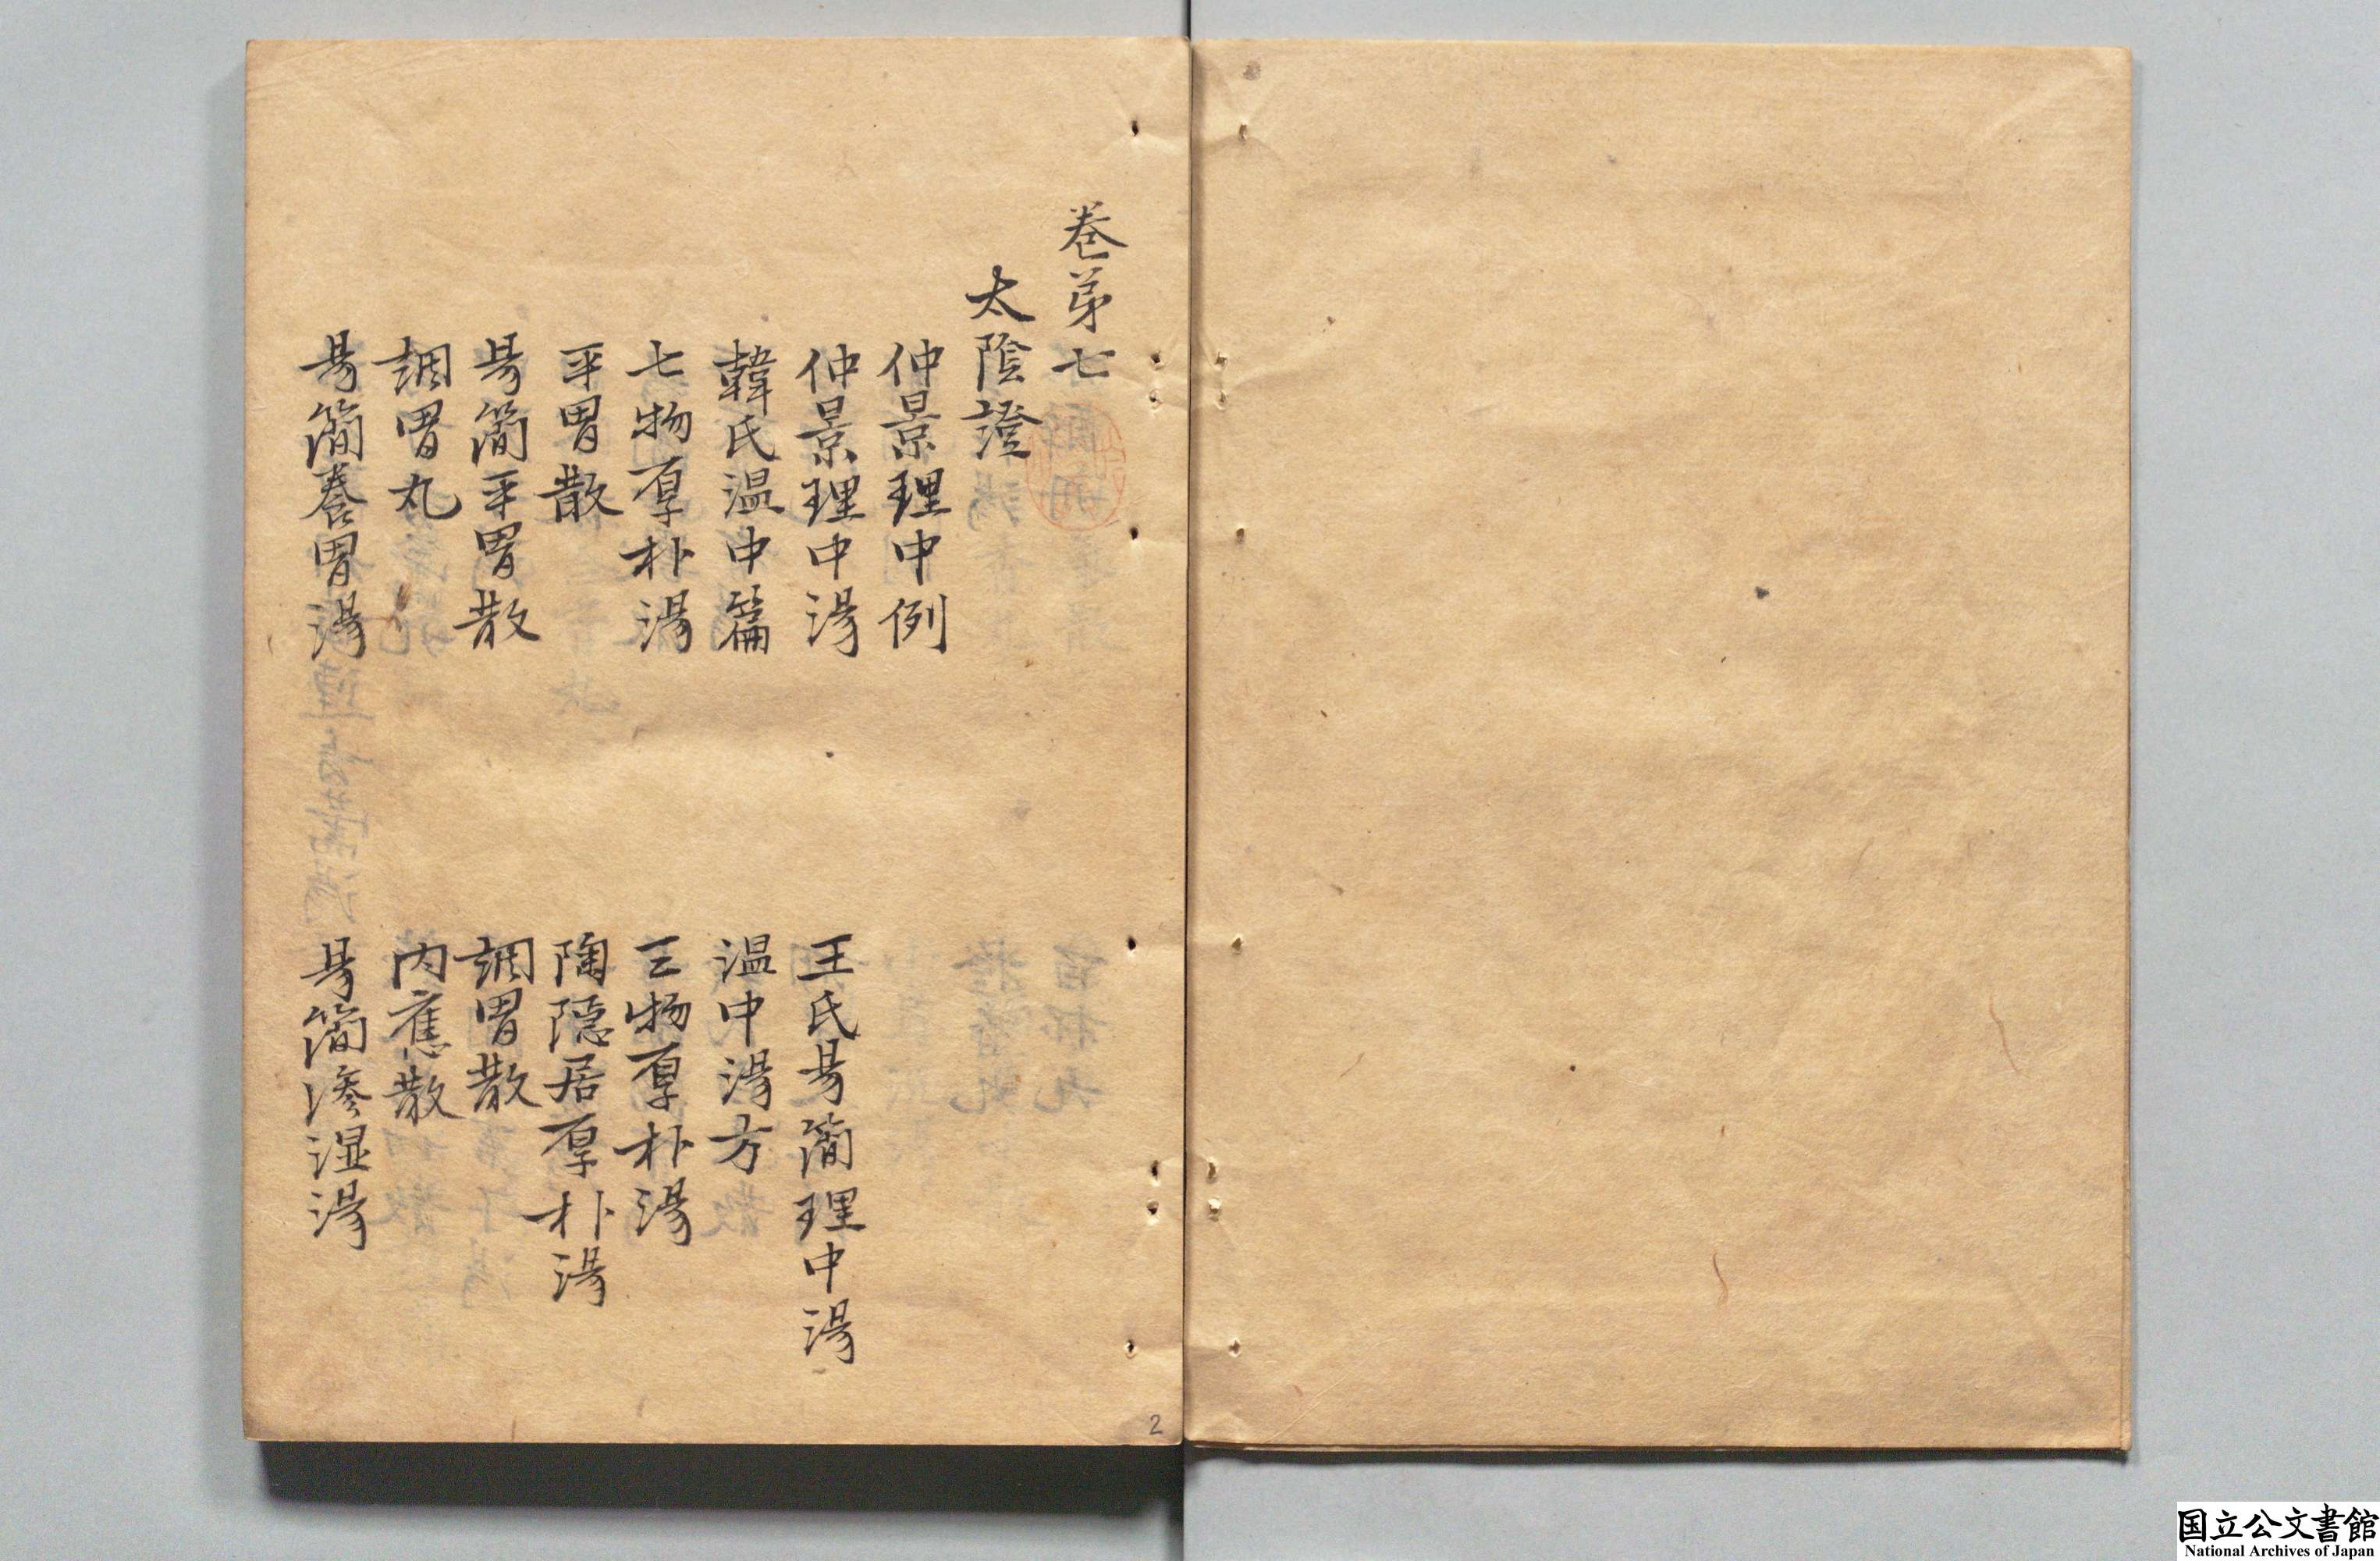 巻苐七
太陰證
仲景理中例
仲景理中湯　王氏易簡理中湯
韓氏温中篇　温中湯方
七物厚朴湯　三物厚朴湯
平胃散　陶隠居厚朴湯
易簡平胃散　調胃散
調胃丸　内應散
易簡養胃湯　易簡滲湿湯
2
国立公文書館
National Archives of Japan